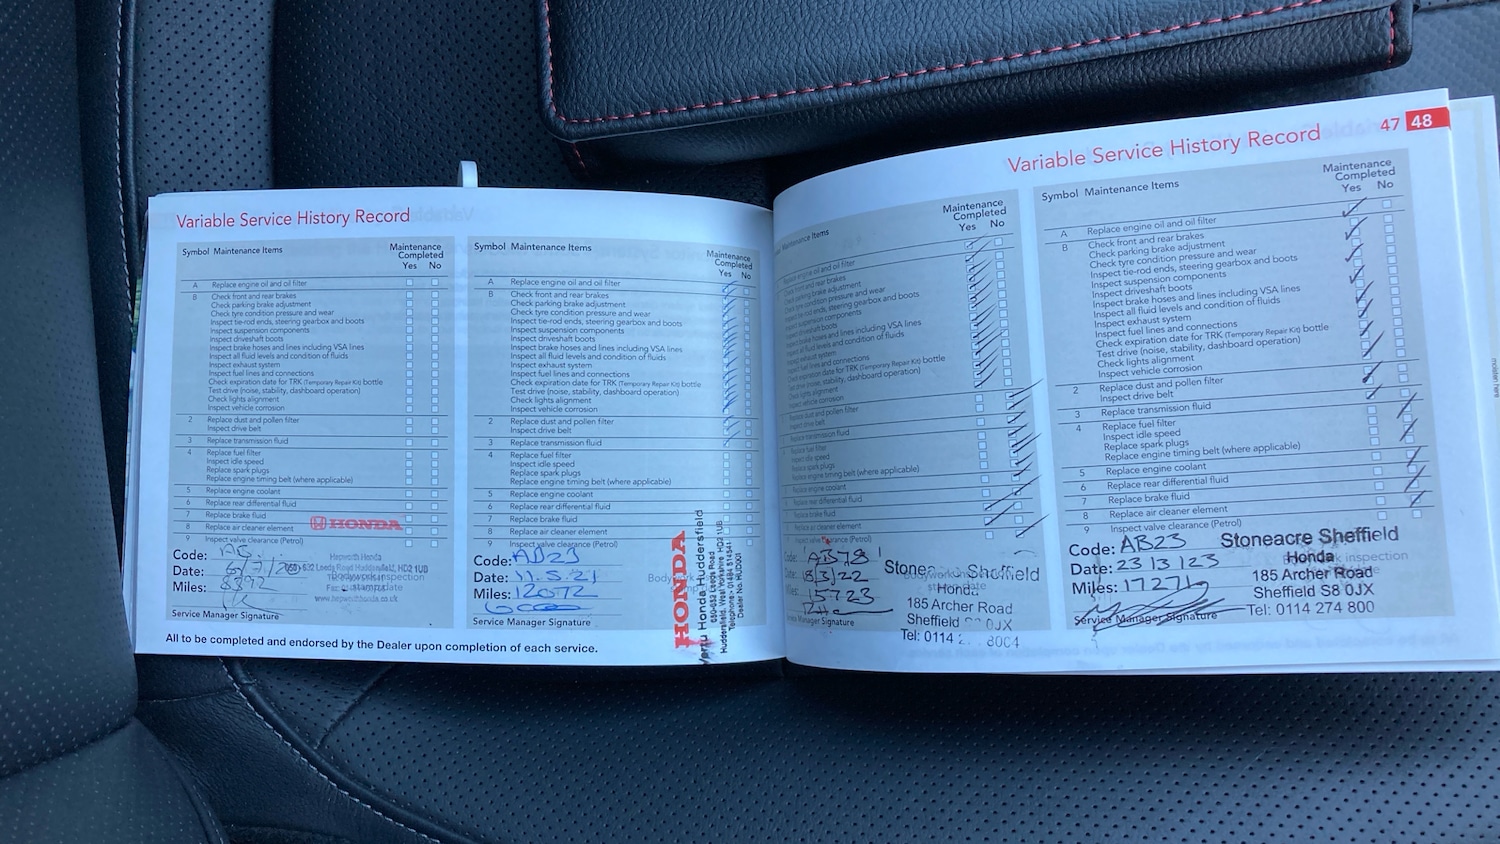 Variable Service History Record
Symbol Maintenance Items
Maintenance
Completed
Yes No
A Replace engine oil and oil filter
B Check front and rear brakes
Check parking brake adjustment
Check tyre condition pressure and wear
Inspect tie-rod ends, steering gearbox and boots
Inspect suspension components
Inspect driveshaft boots
Inspect brake hoses and lines including VSA lines
Inspect all fluid levels and condition of fluids
Inspect exhaust system
Inspect fuel lines and connections
Check expiration date for TRK (Temporary Repair Kit) bottle
Test drive (noise, stability, dashboard operation)
Check lights alignment
Inspect vehicle corrosion
2 Replace dust and pollen filter
Inspect drive belt
3 Replace transmission fluid
4 Replace fuel filter
Inspect idle speed
Replace spark plugs
Replace engine timing belt (where applicable)
5 Replace engine coolant
6 Replace rear differential fluid
7 Replace brake fluid
8 Replace air cleaner element
9 Inspect valve clearance (Petrol)
HONDA
Code:
Date:
Miles: 8892
Hepworth Honda
632 Leeds Road Huddersfield, HD2 1UB
www.hepworthhonda.co.uk
Service Manager Signature
All to be completed and endorsed by the Dealer upon completion of each service.
Symbol Maintenance Items
Maintenance
Completed
Yes No
A Replace engine oil and oil filter
B Check front and rear brakes
Check parking brake adjustment
Check tyre condition pressure and wear
Inspect tie-rod ends, steering gearbox and boots
Inspect suspension components
Inspect driveshaft boots
Inspect brake hoses and lines including VSA lines
Inspect all fluid levels and condition of fluids
Inspect exhaust system
Inspect fuel lines and connections
Check expiration date for TRK (Temporary Repair Kit) bottle
Test drive (noise, stability, dashboard operation)
Check lights alignment
Inspect vehicle corrosion
2 Replace dust and pollen filter
Inspect drive belt
3 Replace transmission fluid
4 Replace fuel filter
Inspect idle speed
Replace spark plugs
Replace engine timing belt (where applicable)
5 Replace engine coolant
6 Replace rear differential fluid
7 Replace brake fluid
8 Replace air cleaner element
9 Inspect valve clearance (Petrol)
Code: AB23
Date: 11.5.21
Miles: 12072
Service Manager Signature
HONDA
Honda Huddersfield
Leeds Road
Huddersfield, West Yorkshire HD2 1UB
Variable Service History Record
47 48
Maintenance Items
Maintenance
Completed
Yes No
Replace engine oil and oil filter
Check front and rear brakes
parking brake adjustment
tyre condition pressure and wear
tie-rod ends, steering gearbox and boots
suspension components
driveshaft boots
brake hoses and lines including VSA lines
all fluid levels and condition of fluids
exhaust system
fuel lines and connections
expiration date for TRK (Temporary Repair Kit) bottle
drive (noise, stability, dashboard operation)
lights alignment
vehicle corrosion
Replace dust and pollen filter
drive belt
Replace transmission fluid
fuel filter
idle speed
spark plugs
engine timing belt (where applicable)
engine coolant
rear differential fluid
brake fluid
air cleaner element
valve clearance (Petrol)
Code: AB78
Date: 18/3/22
15723
Service Manager Signature
Sheffield
Honda
185 Archer Road
Sheffield
Tel: 0114
Symbol Maintenance Items
Maintenance
Completed
Yes No
A Replace engine oil and oil filter
B Check front and rear brakes
Check parking brake adjustment
Check tyre condition pressure and wear
Inspect tie-rod ends, steering gearbox and boots
Inspect suspension components
Inspect driveshaft boots
Inspect brake hoses and lines including VSA lines
Inspect all fluid levels and condition of fluids
Inspect exhaust system
Inspect fuel lines and connections
Check expiration date for TRK (Temporary Repair Kit) bottle
Test drive (noise, stability, dashboard operation)
Check lights alignment
Inspect vehicle corrosion
2 Replace dust and pollen filter
Inspect drive belt
3 Replace transmission fluid
4 Replace fuel filter
Inspect idle speed
Replace spark plugs
Replace engine timing belt (where applicable)
5 Replace engine coolant
6 Replace rear differential fluid
7 Replace brake fluid
8 Replace air cleaner element
9 Inspect valve clearance (Petrol)
Code: AB23
Date: 23/3/23
Miles: 17271
Service Manager Signature
Stoneacre Sheffield
Honda
185 Archer Road
Sheffield S8 0JX
Tel: 0114 274 800